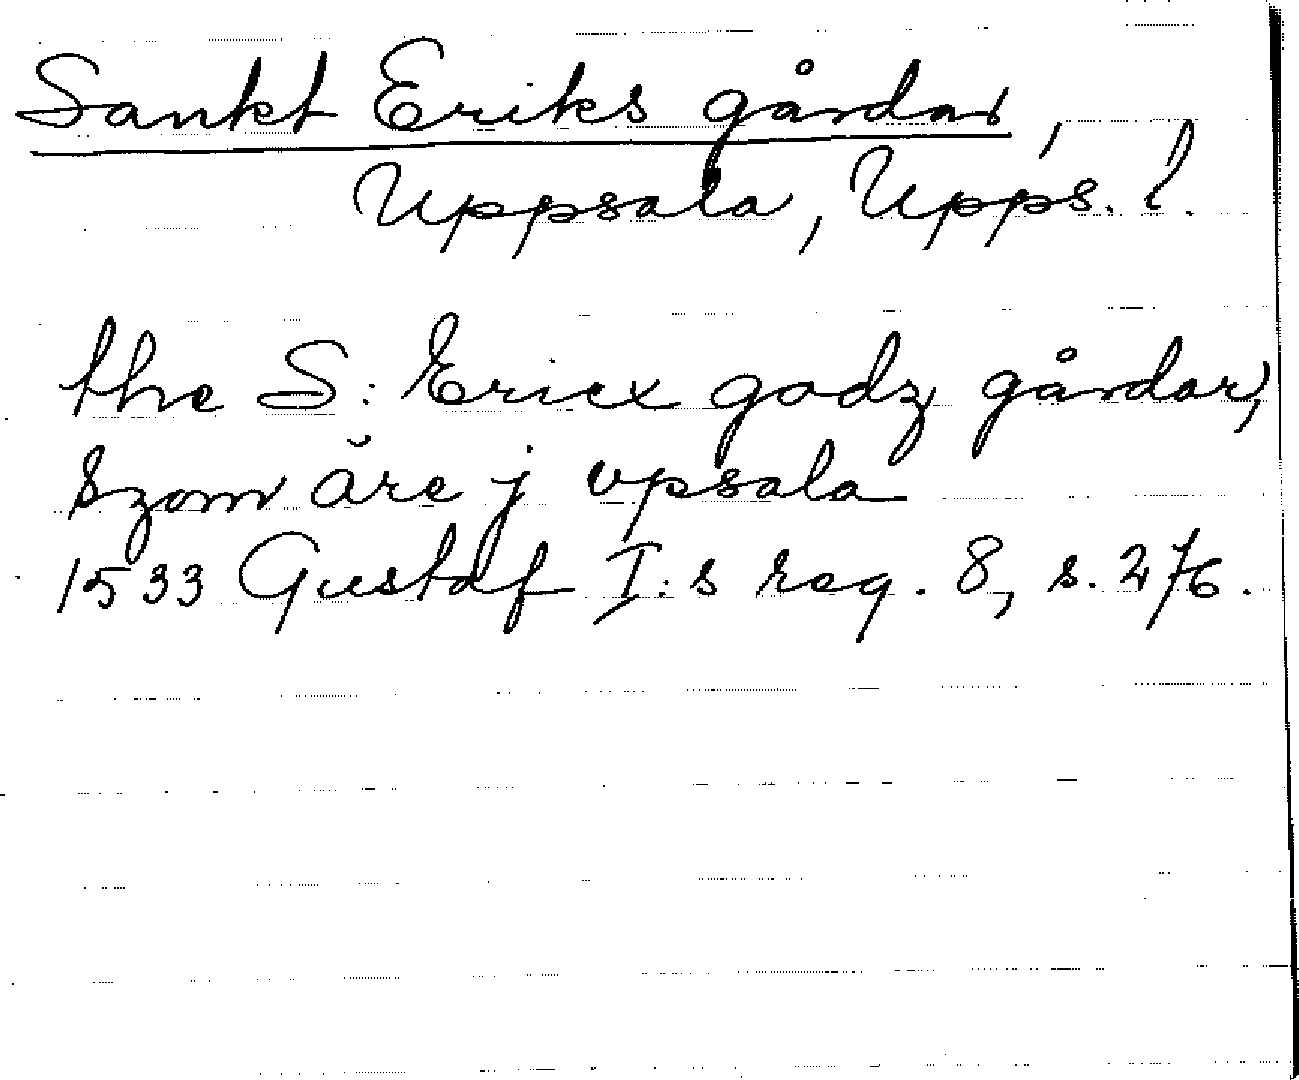 Sankt Eriks gårdar,
Uppsala, Upps. l.
the S: Ericx godz gårdar,
szom äre j vpsala
1533 Gustaf I:s reg. 8, s. 276.